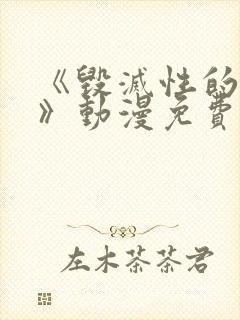 《毀滅性的
》動漫免費
左木茶茶君